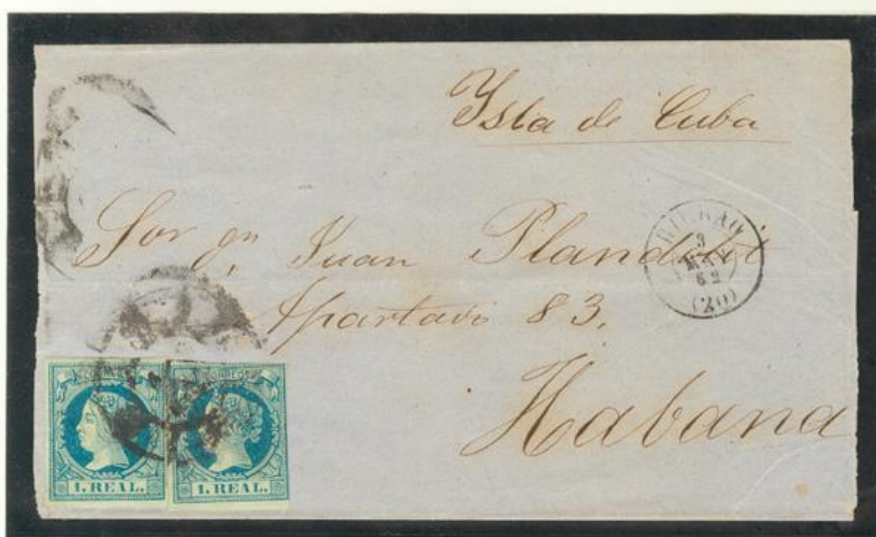 Ysla de Cuba
Sor Dn Juan Plandolit
Apartado 83.
Habana
BILBAO
3
MAY
62
(20)
CORREOS
1. REAL.
CORREOS
1. REAL.